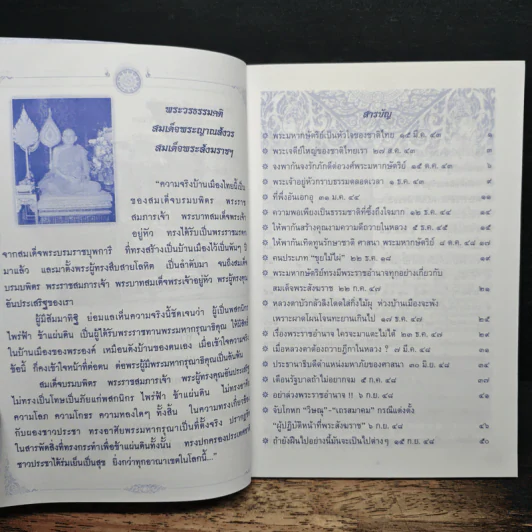 พระวรธรรมคติ
สมเด็จพระญาณสังวร
สมเด็จพระสังฆราชฯ
"ความจริงบ้านเมืองไทยนี้เป็น
ของสมเด็จบรมบพิตร พระราช
สมภารเจ้า พระบาทสมเด็จพระเจ้า
อยู่หัว ทรงได้รับเป็นพระราชมรดก
จากสมเด็จพระบรมราชบุพการี ที่ทรงสร้างเป็นบ้านเมืองไว้เป็นพันๆ ปี
มาแล้ว และมาตั้งพระผู้ทรงสืบสายโลหิต เป็นลำดับมา จนถึงสมเด็จ
บรมบพิตร พระราชสมภารเจ้า พระบาทสมเด็จพระเจ้าอยู่หัว พระผู้ทรงคุณ
อันประเสริฐของเรา
ผู้มีสัมมาทิฐิ ย่อมแลเห็นความจริงนี้ชัดเจนว่า ผู้เป็นพสกนิกร
ไพร่ฟ้า ข้าแผ่นดิน เป็นผู้ได้รับพระราชทานพรมมหากรุณาธิคุณ ให้มีสิทธิ์
ในบ้านเมืองของพระองค์ เหมือนดังบ้านของตนเอง เมื่อเข้าใจความจริง
ข้อนี้ ก็คงเข้าใจหน้าที่ต่อตน ต่อพระผู้มีพรมมหากรุณาธิคุณเป็นต้นดัน
สมเด็จบรมบพิตร พระราชสมภารเจ้า พระผู้ทรงคุณอันประเสริฐ
ไม่ทรงเป็นโทษเป็นภัยแก่พสกนิกร ไพร่ฟ้า ข้าแผ่นดิน ไม่ทรงอาศัย
ความโลภ ความโกรธ ความหลงใดๆ ทั้งสิ้น ในความทรงเกี่ยวข้อง
กับผองชาวประชา ทรงอาศัยพรมมหากรุณาเป็นที่ตั้งจริง ปรากฏชัด
ในสารพัดสิ่งที่ทรงกระทำเพื่อข้าแผ่นดินทั้งนั้น ทรงปกครองประเทศชาติ
ชาวประชาได้ร่มเย็นเป็นสุข ยิ่งกว่าทุกอาณาเขตในโลกนี้..."
สารบัญ
พระมหากษัตริย์เป็นหัวใจของชาติไทย ๑๕ มี.ค. ๔๓ ๑
พระเจดีย์ใหญ่ของชาติไทยเรา ๒๗ ส.ค. ๔๓ ๓
จงพากันจงรักภักดีต่อองค์พระมหากษัตริย์ ๑๕ ต.ค. ๔๓ ๖
พระเจ้าอยู่หัวกราบธรรมตลอดเวลา ๑ ธ.ค. ๔๓ ๙
ที่พึ่งอันเอกอุ ๓๑ ม.ค. ๔๔ ๑๑
ความพอเพียงเป็นธรรมชาติที่ซึ้งถึงใจมาก ๑๒ ธ.ค. ๔๔ ๑๔
ให้พากันสร้างคุณงามความดีถวายในหลวง ๕ ธ.ค. ๔๕ ๑๕
ให้พากันเทิดทูนรักษาชาติ ศาสนา พระมหากษัตริย์ ๘ ต.ค. ๔๗ ๑๗
คนประเภท "ขุยไม้ไผ่" ๒๒ ธ.ค. ๔๗ ๑๘
พระมหากษัตริย์ทรงมีพระราชอำนาจทุกอย่างเกี่ยวกับ
สมเด็จพระสังฆราช ๒๒ ก.ค. ๔๗ ๒๑
หลวงตาบัวกลัวลิงโดดใส่กิ่งไม้ผุ ห่วงบ้านเมืองจะพัง
เพราะผาดโผนโจนทะยานเกินไป ๑๗ ธ.ค. ๔๗
เรื่องพระราชอำนาจ ใครจะมาแตะไม่ได้ ๒๓ ธ.ค. ๔๗
เมื่อหลวงตาต้องถวายฎีกาในหลวง ? ๗ มี.ค. ๔๘
ประธานาธิบดีตำแหน่งมหาภัยของศาสนา ๓๐ มิ.ย. ๔๘
เตือนรัฐบาลถ้าไม่อยากจม ๕ ก.ค. ๔๘
อย่าล่วงพระราชอำนาจ !! ๖ ก.ย. ๔๘
จับโกหก "วิษณุ"-"เถรสมาคม" กรณีแต่งตั้ง
"ผู้ปฏิบัติหน้าที่พระสังฆราช" ๖ ก.ย. ๔๘
ถ้ายังฝืนไปอย่างนี้มันจะเป็นไปต่างๆ ๑๕ ก.ย. ๔๘ ๕๐